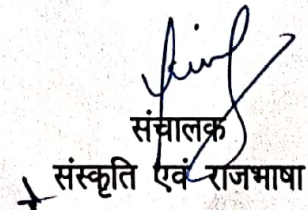 संचालक
संस्कृति एवं राजभाषा